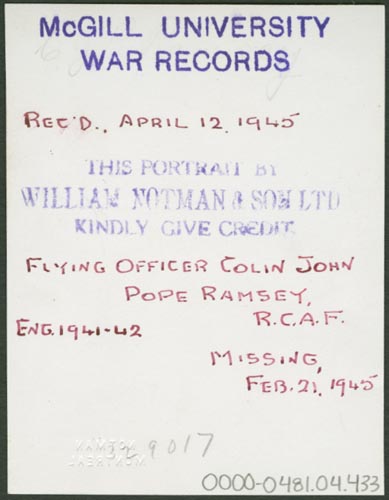 McGILL UNIVERSITY
WAR RECORDS
REC'D., APRIL 12, 1945
THIS PORTRAIT BY
WILLIAM NOTMAN & SON LTD
KINDLY GIVE CREDIT
FLYING OFFICER COLIN JOHN
POPE RAMSEY,
R.C.A.F.
ENG. 1941-42
MISSING,
FEB. 21, 1945
9017
NOTMAN
MONTREAL
0000-0481.04.433